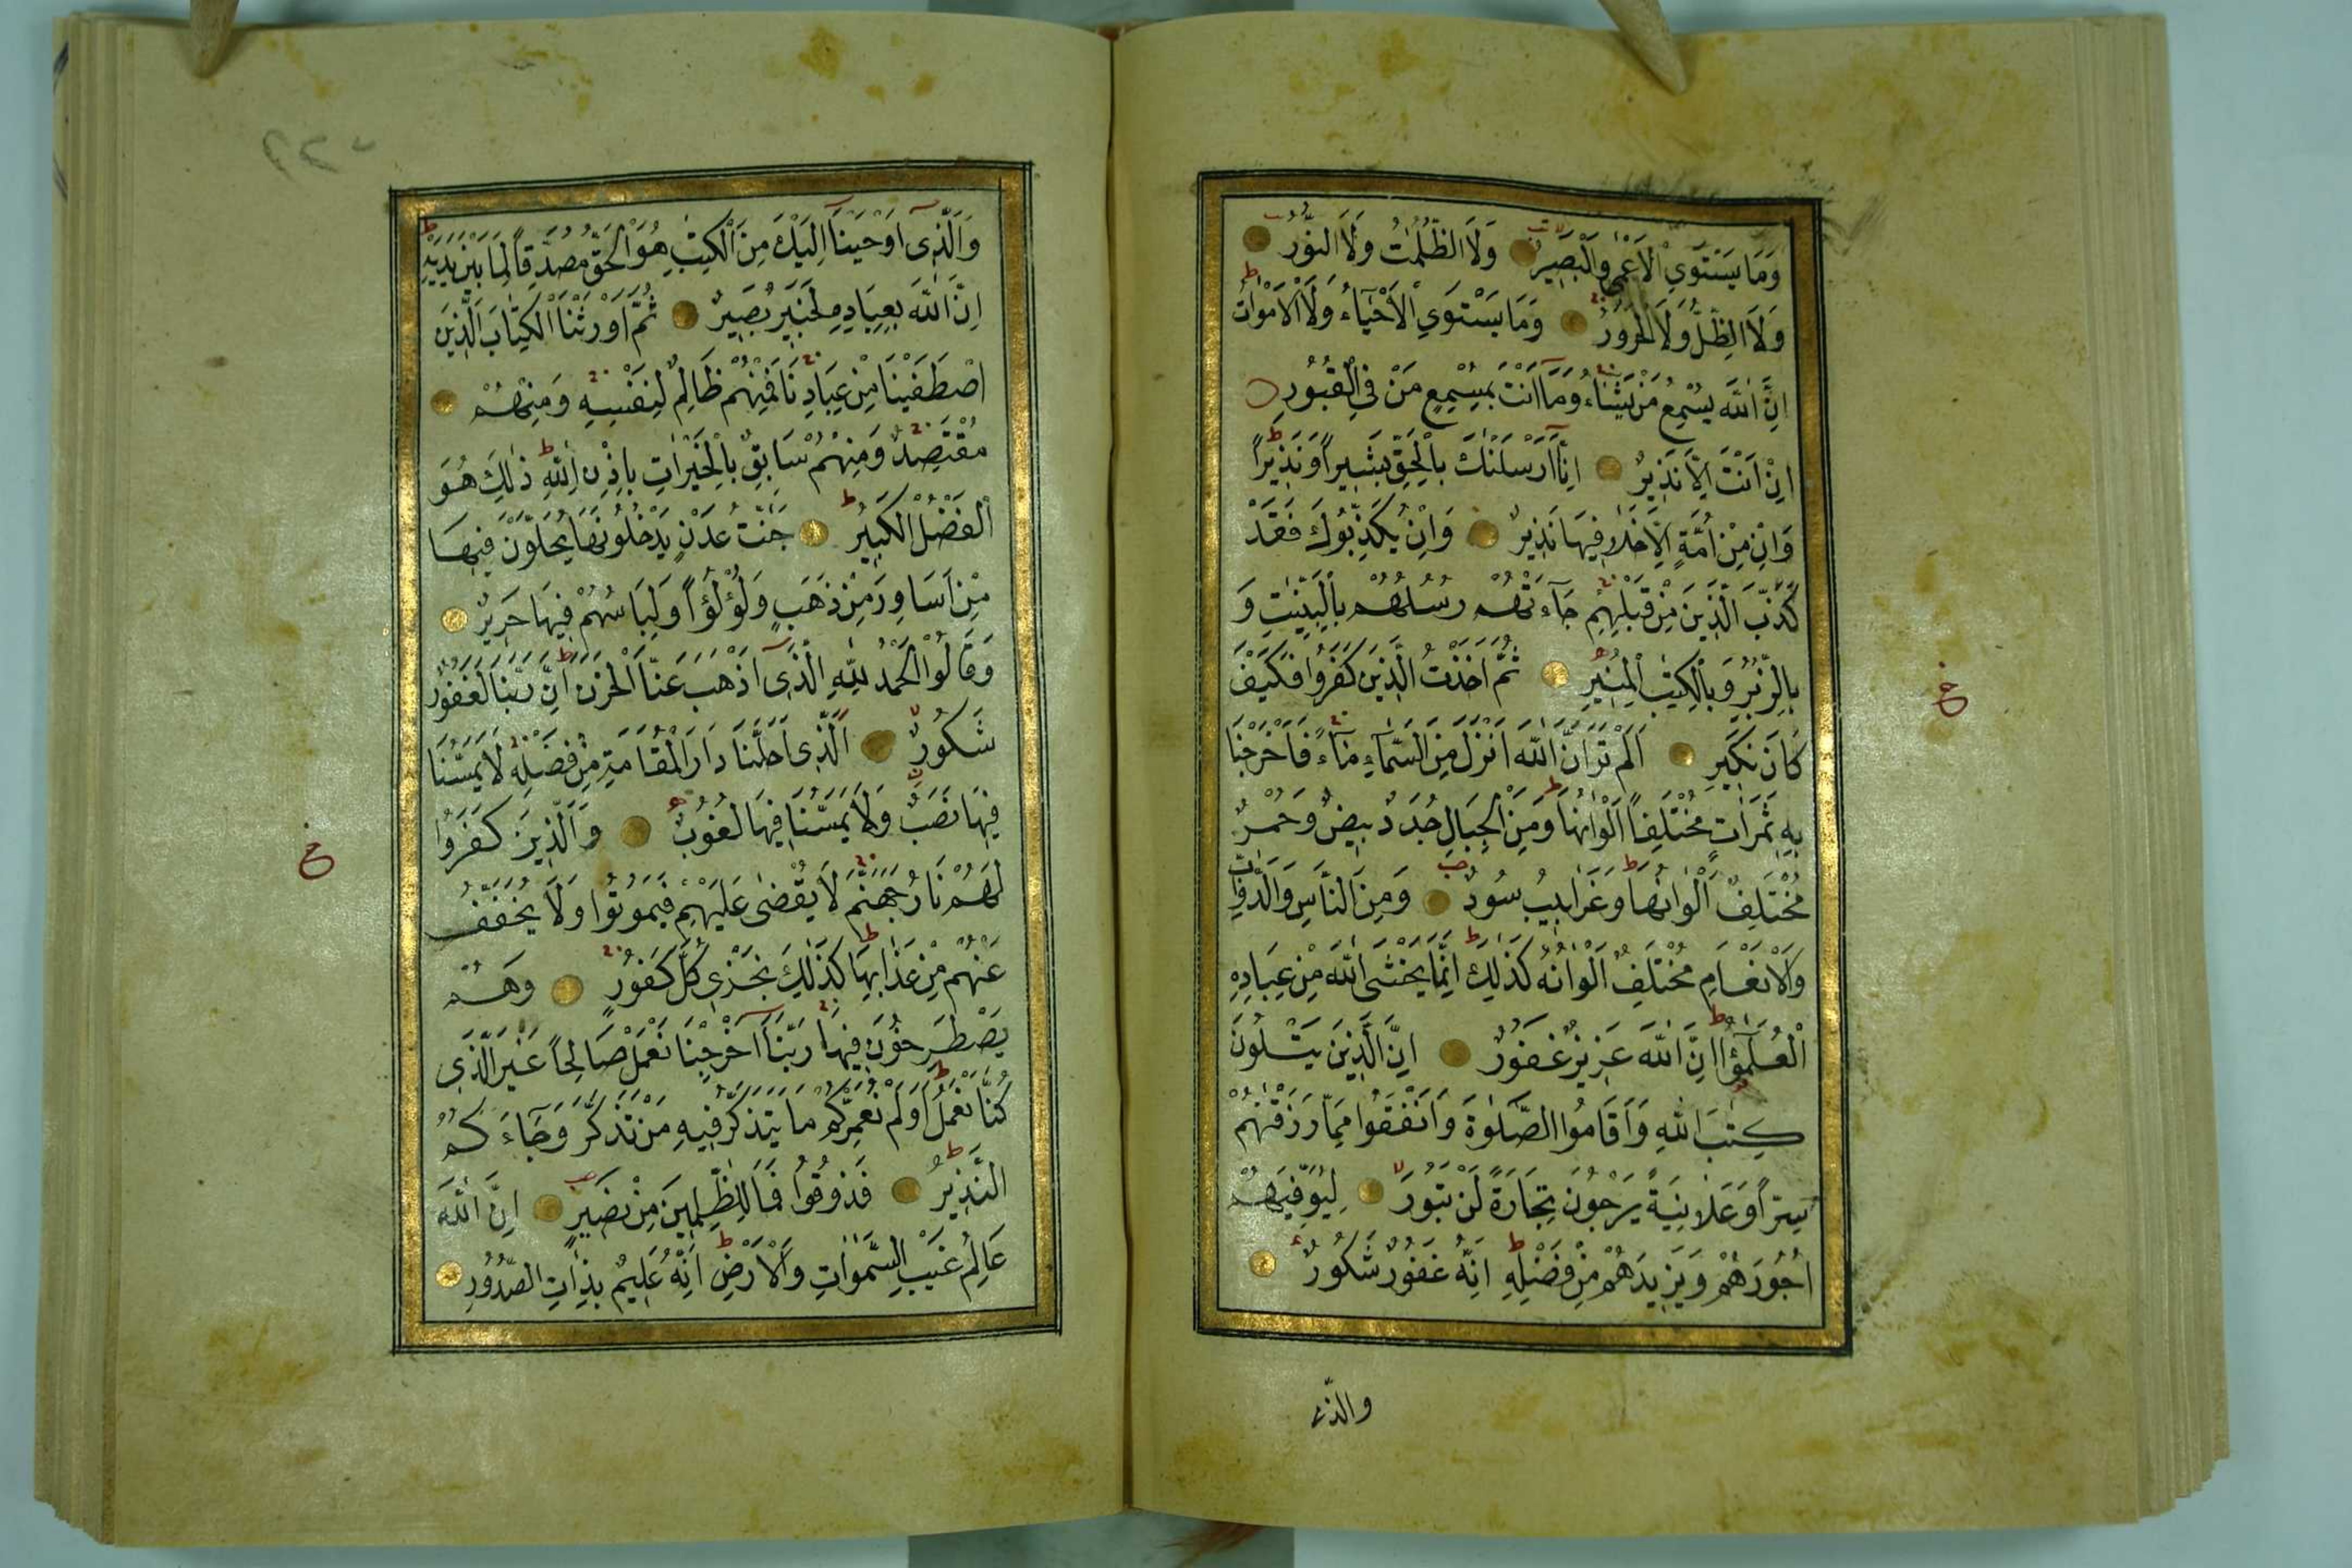 وَمَا يَسْتَوِي الْاَعْمٰى وَالْبَصِيرُ وَلَا الظُّلُمَاتُ وَلَا النُّورُ
وَلَا الظِّلُّ وَلَا الْحَرُورُ وَمَا يَسْتَوِي الْاَحْيَاءُ وَلَا الْاَمْوَاتُ
اِنَّ اللّٰهَ يُسْمِعُ مَنْ يَشَاءُ وَمَا اَنْتَ بِمُسْمِعٍ مَنْ فِي الْقُبُورِ
اِنْ اَنْتَ اِلَّا نَذِيرٌ اِنَّا اَرْسَلْنٰكَ بِالْحَقِّ بَشِيراً وَنَذِيراً
وَاِنْ مِنْ اُمَّةٍ اِلَّا خَلَا فِيهَا نَذِيرٌ وَاِنْ يُكَذِّبُوكَ فَقَدْ
كَذَّبَ الَّذِينَ مِنْ قَبْلِهِمْ جَاءَتْهُمْ رُسُلُهُمْ بِالْبَيِّنٰتِ وَ
بِالزُّبُرِ وَبِالْكِتٰبِ الْمُنِيرِ ثُمَّ اَخَذْتُ الَّذِينَ كَفَرُوا فَكَيْفَ
كَانَ نَكِيرِ اَلَمْ تَرَ اَنَّ اللّٰهَ اَنْزَلَ مِنَ السَّمَاءِ مَاءً فَاَخْرَجْنَا
بِهِ ثَمَرَاتٍ مُخْتَلِفاً اَلْوَانُهَا وَمِنَ الْجِبَالِ جُدَدٌ بِيضٌ وَحُمْرٌ
مُخْتَلِفٌ اَلْوَانُهَا وَغَرَابِيبُ سُودٌ وَمِنَ النَّاسِ وَالدَّوَابِّ
وَالْاَنْعَامِ مُخْتَلِفٌ اَلْوَانُهُ كَذٰلِكَ اِنَّمَا يَخْشَى اللّٰهَ مِنْ عِبَادِهِ
الْعُلَمٰؤُا اِنَّ اللّٰهَ عَزِيزٌ غَفُورٌ اِنَّ الَّذِينَ يَتْلُونَ
كِتٰبَ اللّٰهِ وَاَقَامُوا الصَّلٰوةَ وَاَنْفَقُوا مِمَّا رَزَقْنٰهُمْ
سِرّاً وَعَلَانِيَةً يَرْجُونَ تِجَارَةً لَنْ تَبُورَ لِيُوَفِّيَهُمْ
اُجُورَهُمْ وَيَزِيدَهُمْ مِنْ فَضْلِهِ اِنَّهُ غَفُورٌ شَكُورٌ
والذى
وَالَّذِى اَوْحَيْنَا اِلَيْكَ مِنَ الْكِتٰبِ هُوَ الْحَقُّ مُصَدِّقاً لِمَا بَيْنَ يَدَيْهِ
اِنَّ اللّٰهَ بِعِبَادِهِ لَخَبِيرٌ بَصِيرٌ ثُمَّ اَوْرَثْنَا الْكِتَابَ الَّذِينَ
اصْطَفَيْنَا مِنْ عِبَادِنَا فَمِنْهُمْ ظَالِمٌ لِنَفْسِهِ وَمِنْهُمْ
مُقْتَصِدٌ وَمِنْهُمْ سَابِقٌ بِالْخَيْرَاتِ بِاِذْنِ اللّٰهِ ذٰلِكَ هُوَ
الْفَضْلُ الْكَبِيرُ جَنّٰتُ عَدْنٍ يَدْخُلُونَهَا يُحَلَّوْنَ فِيهَا
مِنْ اَسَاوِرَ مِنْ ذَهَبٍ وَلُؤْلُؤاً وَلِبَاسُهُمْ فِيهَا حَرِيرٌ
وَقَالُوا الْحَمْدُ لِلّٰهِ الَّذِى اَذْهَبَ عَنَّا الْحَزَنَ اِنَّ رَبَّنَا لَغَفُورٌ
شَكُورٌ اَلَّذِى اَحَلَّنَا دَارَ الْمُقَامَةِ مِنْ فَضْلِهِ لَا يَمَسُّنَا
فِيهَا نَصَبٌ وَلَا يَمَسُّنَا فِيهَا لُغُوبٌ وَالَّذِينَ كَفَرُوا
لَهُمْ نَارُ جَهَنَّمَ لَا يُقْضٰى عَلَيْهِمْ فَيَمُوتُوا وَلَا يُخَفَّفُ
عَنْهُمْ مِنْ عَذَابِهَا كَذٰلِكَ نَجْزِى كُلَّ كَفُورٍ وَهُمْ
يَصْطَرِخُونَ فِيهَا رَبَّنَا اَخْرِجْنَا نَعْمَلْ صَالِحاً غَيْرَ الَّذِى
كُنَّا نَعْمَلُ اَوَلَمْ نُعَمِّرْكُمْ مَا يَتَذَكَّرُ فِيهِ مَنْ تَذَكَّرَ وَجَاءَكُمُ
النَّذِيرُ فَذُوقُوا فَمَا لِلظّٰلِمِينَ مِنْ نَصِيرٍ اِنَّ اللّٰهَ
عَالِمُ غَيْبِ السَّمٰوَاتِ وَالْاَرْضِ اِنَّهُ عَلِيمٌ بِذَاتِ الصُّدُورِ